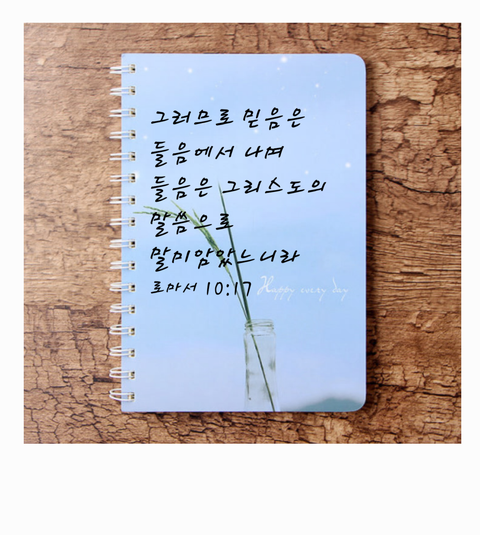 그러므로 믿음은
들음에서 나며
들음은 그리스도의
말씀으로
말미암았느니라
로마서 10:17
Happy every day